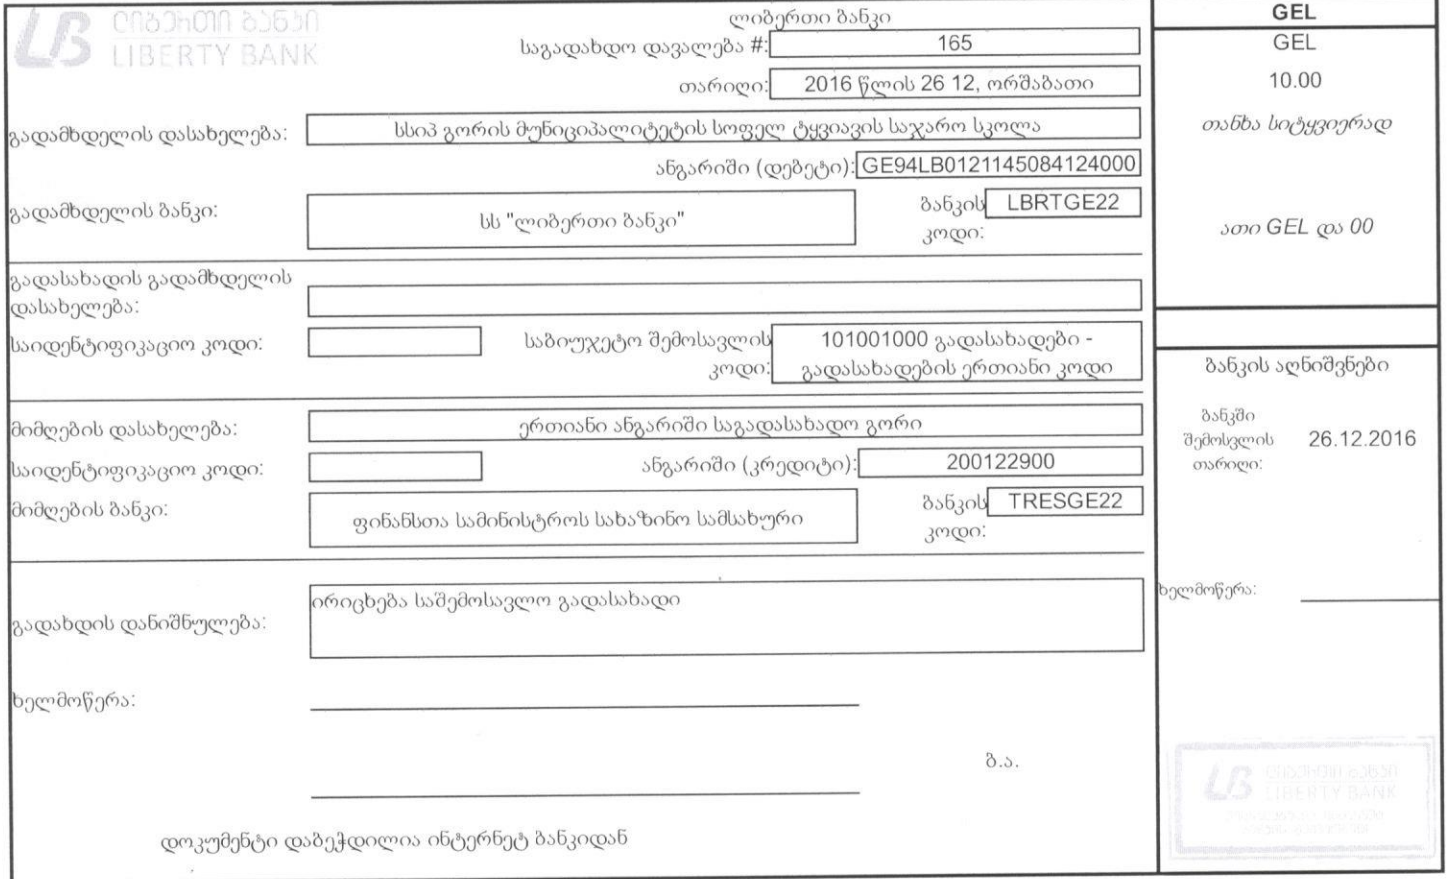 ლიბერთი ბანკი
LIBERTY BANK
ლიბერთი ბანკი
საგადახდო დავალება #: 165
თარიღი: 2016 წლის 26 12, ორშაბათი
გადამხდელის დასახელება: სსიპ გორის მუნიციპალიტეტის სოფელ ტყვიავის საჯარო სკოლა
ანგარიში (დებეტი): GE94LB0121145084124000
გადამხდელის ბანკი: სს "ლიბერთი ბანკი" ბანკის კოდი: LBRTGE22
გადასახადის გადამხდელის
დასახელება:
საიდენტიფიკაციო კოდი: საბიუჯეტო შემოსავლის კოდი: 101001000 გადასახადები -
გადასახადების ერთიანი კოდი
მიმღების დასახელება: ერთიანი ანგარიში საგადასახადო გორი
საიდენტიფიკაციო კოდი: ანგარიში (კრედიტი): 200122900
მიმღების ბანკი: ფინანსთა სამინისტროს სახაზინო სამსახური ბანკის კოდი: TRESGE22
გადახდის დანიშნულება: ირიცხება საშემოსავლო გადასახადი
ხელმოწერა:
ბ.ა.
დოკუმენტი დაბეჭდილია ინტერნეტ ბანკიდან
GEL
GEL
10.00
თანხა სიტყვიერად
ათი GEL და 00
ბანკის აღნიშვნები
ბანკში
შემოსვლის 26.12.2016
თარიღი:
ხელმოწერა:
LB ლიბერთი ბანკი
LIBERTY BANK